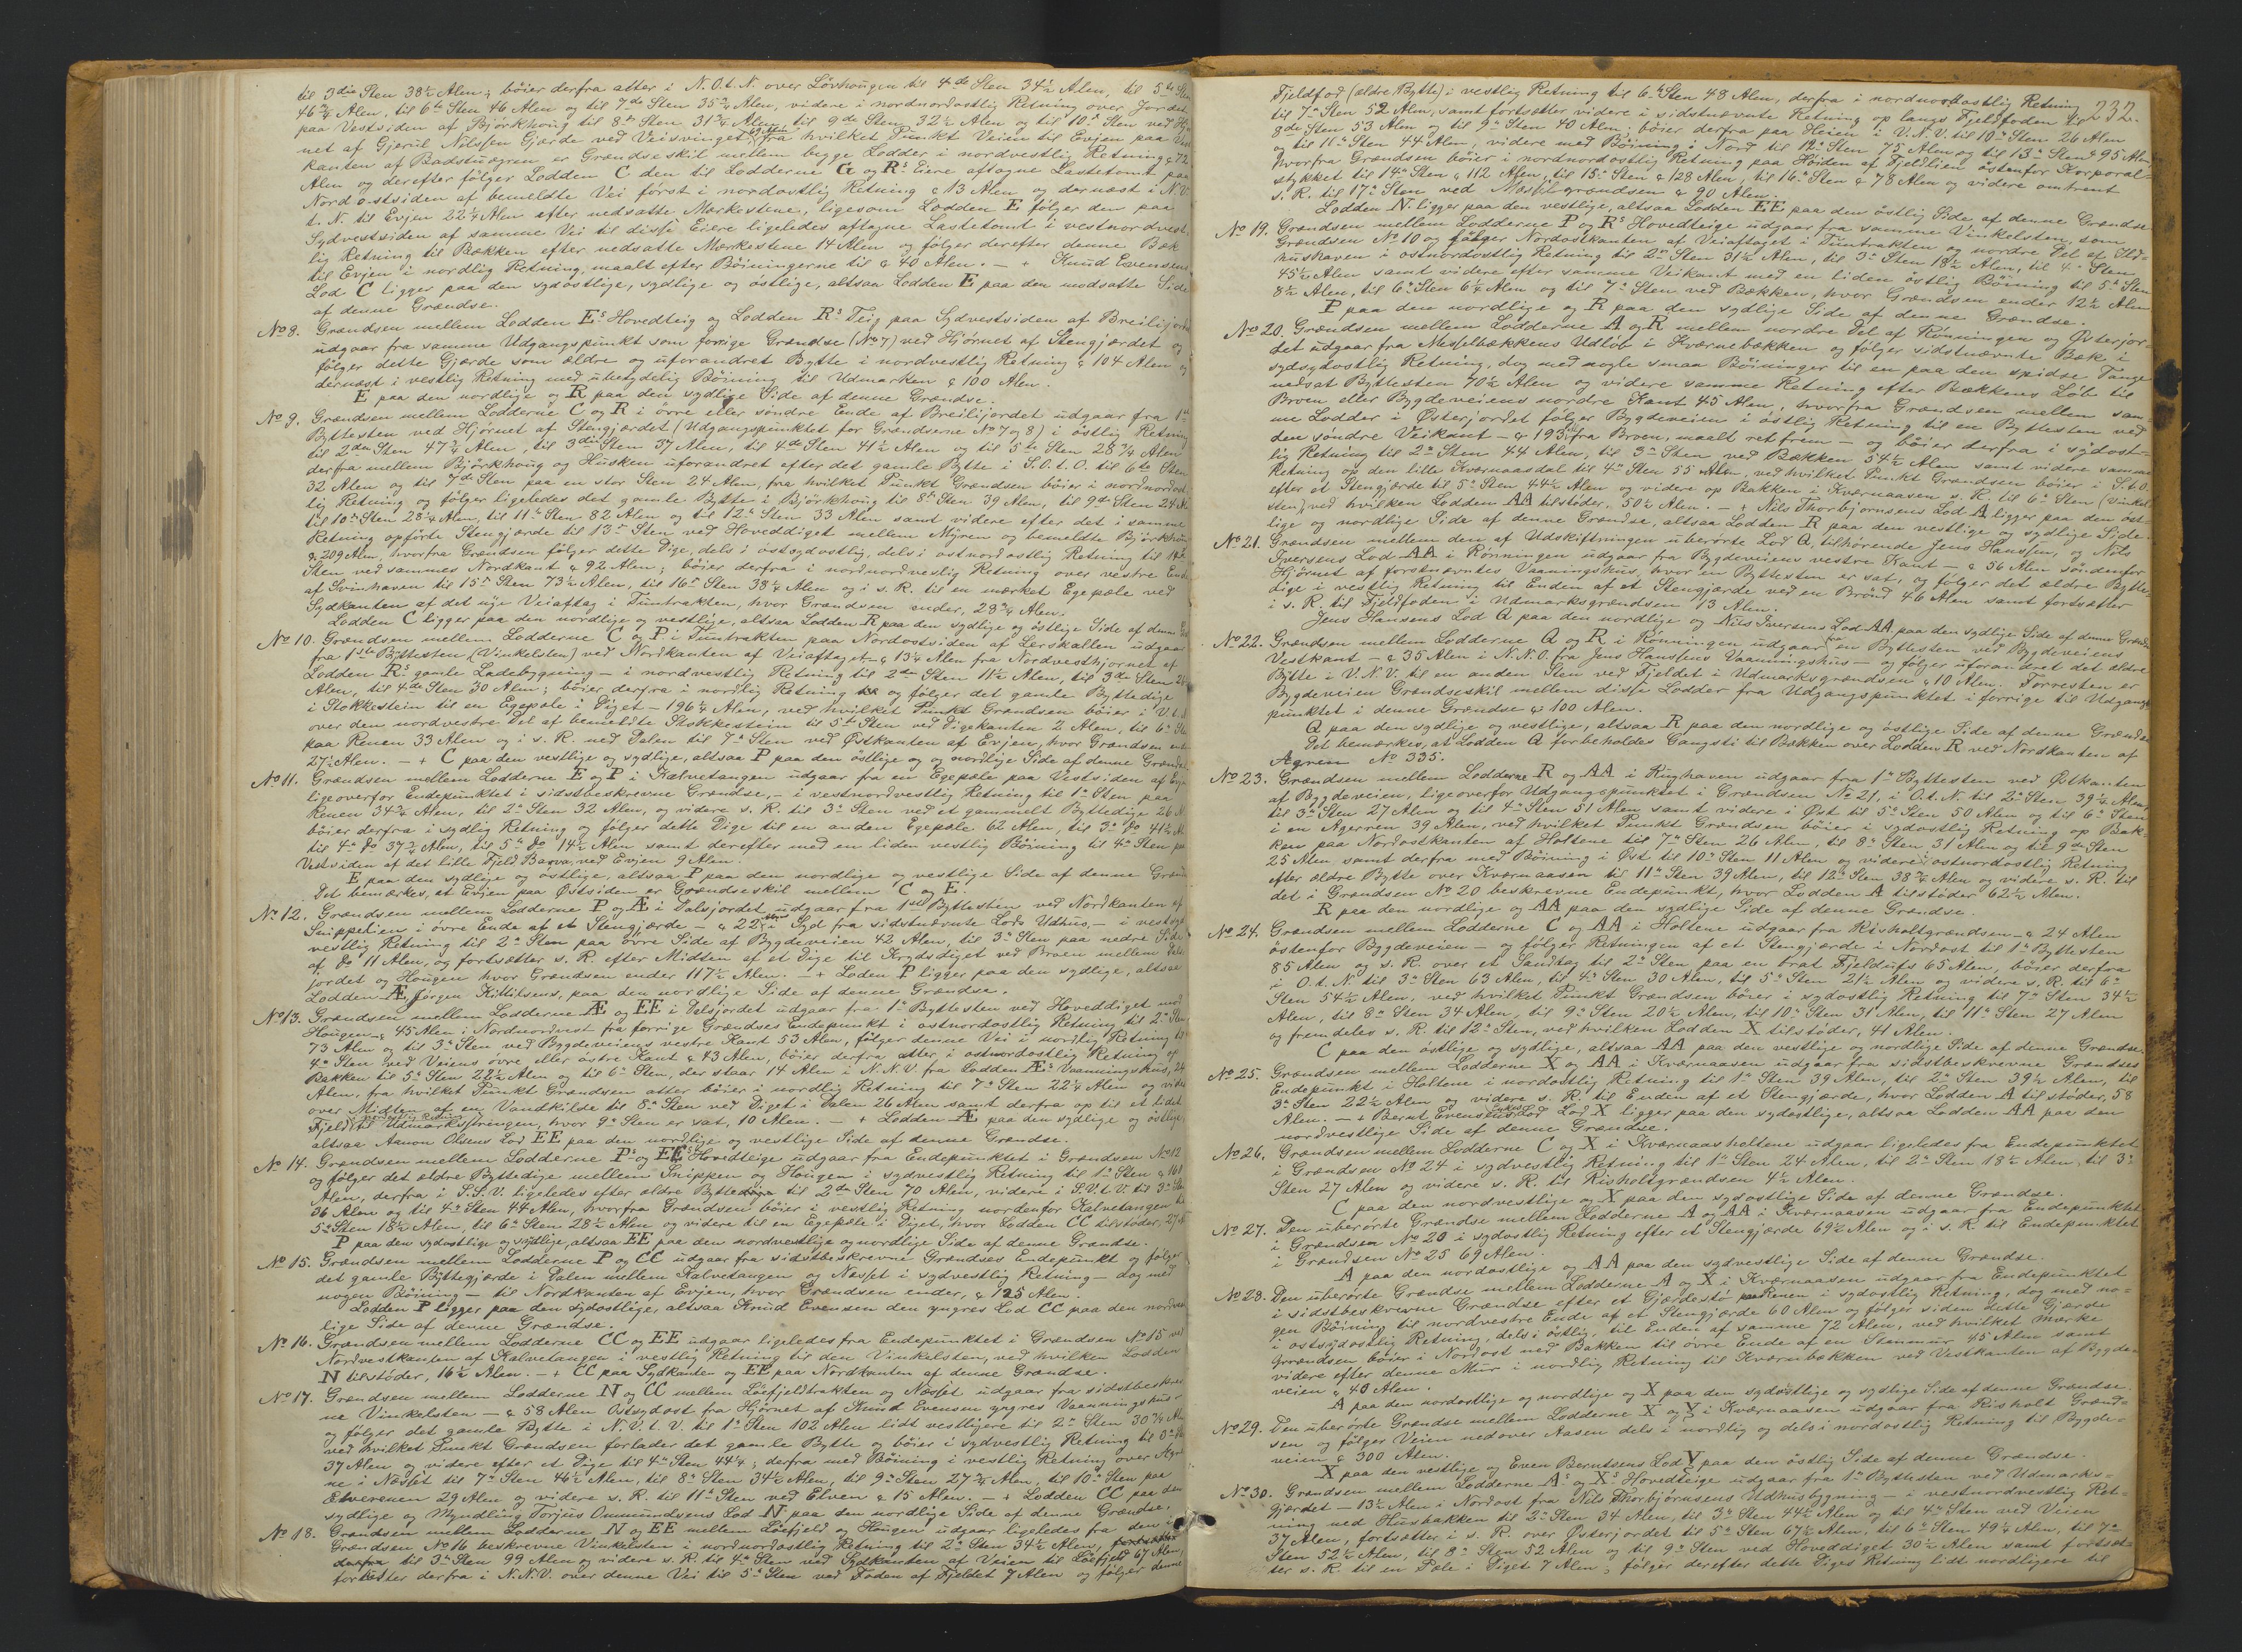 til 3die Sten 38½ Alen; böier derfra atter i N.O.t.N. over Lövhougen til 4de Sten 34½ Alen, til 5te Sten
46¾ Alen, til 6te Sten 46 Alen og til 7de Sten 35¾ Alen, videre i nordnordostlig Retning over Jordet
paa Vestsiden af Björkhoug til 8de Sten 31¾ Alen, til 9de Sten 32½ Alen og til 10de Sten ved
net af Gjerul Nilsens Gjærde ved Veisvinget 69 Alen fra hvilket Punkt Veien til Evjen paa
kanten af Badstuagren er Grændseskil mellem begge Lodder i nordvestlig Retning c 72
Alen og derefter følger Lodden C den til Lodderne G og Rs Eiere aftagne Lastetomt paa
Nordostsiden af bemeldte Vei först i nordostlig Retning c 13 Alen og dernæst i N.V.
t. N. til Evjen 22½ Alen efter nedsatte Markestene, ligesom Lodden E følger den paa
Sydvestsiden af samme Vei til disse Eiere ligeledes aftagne Lastetomt i vestnordvest-
lig Retning til Bækken efter nedsatte Markestene 14 Alen og følger derefter denne Bæk
til Evjen i nordlig Retning, maalt efter Böiningerne til c 40 Alen. — + Knud Evensens
Lod C ligger paa den sydostlige, sydlige og östlige, altsaa Lodden E paa den modsatte Side
af denne Grændse.
No 8. Grændsen mellem Lodden Es Hovedteig og Lodden Rs Teig paa Sydvestsiden af Breilijordet
udgaar fra samme Udgangspunkt som forrige Grændse (No 7) ved Hjörnet af Stengjærdet og
følger dette Gjærde som ældre og uforandret Bytte i nordvestlig Retning c 104 Alen og
dernæst i vestlig Retning med ubetydelig Böining til Udmarken c 100 Alen.
E paa den nordlige og R paa den sydlige Side af denne Grændse.
No 9. Grændsen mellem Lodderne C og R i övre eller söndre Ende af Breilijordet udgaar fra 1ste
Byttesten ved Hjörnet af Stengjærdet (Udgangspunktet for Grændserne No 7 og 8) i östlig Retning
til 2den Sten 47¾ Alen, til 3die Sten 37 Alen, til 4de Sten 41½ Alen og til 5te Sten 28¾ Alen
derfra mellem Björkhoug og Husken uforandret efter det gamle Bytte i S.O.t.O. til 6te Sten
32 Alen og til 7de Sten paa en stor Sten 24 Alen, fra hvilket Punkt Grændsen böier i nordnordost-
lig Retning og følger ligeledes det gamle Bytte i Björkhoug til 8de Sten 39 Alen, til 9de Sten 24
til 10de Sten 28¾ Alen, til 11te Sten 82 Alen og til 12te Sten 33 Alen samt videre efter det i samme
Retning opförte Stengjærde til 13de Sten ved Hoveddiget mellem Myren og bemeldte Björkhoug
c 209 Alen, hvorfra Grændsen følger dette Dige, dels i ostsydostlig, dels i ostnordostlig Retning til 14de
Sten ved sammes Nordkant c 92 Alen; böier derfra i nordnordvestlig Retning over vestre Ende
af Svinhaven til 15de Sten 73½ Alen, til 16de Sten 38½ Alen og i s. R. til en mærket Egepæle ved
Sydkanten af det nye Veiaftag i Tuntrakten, hvor Grændsen ender, 28¾ Alen.
Lodden C ligger paa den nordlige og vestlige, altsaa Lodden R paa den sydlige og östlige Side af denne
No 10. Grændsen mellem Lodderne C og P i Tuntrakten paa Nordostsiden af Lerskallen udgaar
fra 1ste Byttesten (Vinkelsten) ved Nordkanten af Veiaftaget c 13½ Alen fra Nordvesthjörnet af
Lodden Rs gamle Ladebygning — i nordvestlig Retning til 2den Sten 11½ Alen, til 3die Sten
Alen, til 4de Sten 30 Alen; böier derfra i nordlig Retning og følger det gamle Byttedige
i Stokkestein til en Egepæle i Diget — 196¼ Alen, ved hvilket Punkt Grændsen böier i V.t.
over den nordvestre Del af bemeldte Stokkestein til 5te Sten ved Digekanten 2 Alen, til 6te Sten
paa Renen 33 Alen og i s. R. ned Dalen til 7de Sten ved Östkanten af Evjen, hvor Grændsen ender
27½ Alen. — + C paa den vestlige og sydlige, altsaa P paa den östlige og nordlige Side af denne Grændse.
No 11. Grændsen mellem Lodderne E og P i Kalvetangen udgaar fra en Egepæle paa Vestsiden af Evjen
ligeoverfor Endepunktet i sidstbeskrevne Grændse, — i vestnordvestlig Retning til 1ste Sten paa
Renen 34¾ Alen, til 2den Sten 32 Alen, og videre s. R. til 3die Sten ved et gammelt Byttedige 26
böier derfra i sydlig Retning og følger dette Dige til en anden Egepæle 62 Alen, til 3die do 41½
til 4de do 37¾ Alen, til 5te do 14½ Alen samt derefter med en liden vestlig Böining til 4de Sten paa
Vestsiden af det lille Fjeld Barva, ved Evjen 9 Alen.
E paa den sydlige og östlige, altsaa P paa den nordlige og vestlige Side af denne
Det bemærkes, at Evjen paa Östsiden er Grændseskil mellem C og E.
No 12. Grændsen mellem Lodderne P og Æ i Dalsjordet udgaar fra 1ste Byttesten ved Nordkanten af
Snippelien i övre Ende af et Stengjærde — c 22 Alen i Syd fra sidstnævnte Lods Udhus, — i vestsyd-
vestlig Retning til 2den Sten paa övre Side af Bygdeveien 42 Alen, til 3die Sten paa nedre Side
af do 11 Alen, og fortsætter s. R. efter Midten af et Dige til Krydsdiget ved Broen mellem Dals-
jordet og Hougen hvor Grændsen ender 117½ Alen. — + Loden P ligger paa den sydlige, altsaa
Lodden Æ, Jörgen Kittilsens, paa den nordlige Side af denne Grændse.
No 13. Grændsen mellem Lodderne Æ og EE i Dalsjordet udgaar fra 1ste Byttesten ved Hoveddiget mod
Hougen — c 45 Alen i Nordnordvest fra forrige Grændses Endepunkt i ostnordostlig Retning til 2den Sten
73 Alen og til 3die Sten ved Bygdeveiens vestre Kant 53 Alen, følger denne Vei i nordlig Retning til
4de Sten ved Veiens övre eller östre Kant c 43 Alen, böier derfra atter i ostnordostlig Retning op
Bakken til 5te Sten 22½ Alen og til 6te Sten, der staar 14 Alen i N.N.V. fra Lodden Æs Vaaningshus, 24
Alen, fra hvilket Punkt Grændsen atter böier i nordlig Retning til 7de Sten 22¼ Alen og videre
over Midten af en Vandkilde til 8de Sten ved Diget i Dalen 26 Alen samt derfra op til et lidet
Fjeld i nordostlig Retning til Udmarkstrengen, hvor 9de Sten er sat, 10 Alen. — + Lodden Æ paa den sydlige og östlige,
altsaa Aanon Olsens Lod EE paa den nordlige og vestlige Side af denne Grændse.
No 14. Grændsen mellem Lodderne Ps og EEs Hovedteige udgaar fra Endepunktet i Grændsen No 12
og følger det ældre Byttedige mellem Snippen og Hougen i sydvestlig Retning til 1ste Sten c 161
Alen, derfra i S.S.V. ligeledes efter ældre Byttedige til 2den Sten 70 Alen, videre i S.V.t.V. til 3die Sten
36 Alen og til 4de Sten 44 Alen, hvorfra Grændsen böier i vestlig Retning nordenfor Kalvetangen til
5te Sten 18½ Alen, til 6te Sten 28½ Alen og videre til en Egepæle i Diget, hvor Lodden CC tilstöder, 27
P paa den sydostlige og sydlige, altsaa EE paa den nordvestlige og nordlige Side af denne Grændse.
No 15. Grændsen mellem Lodderne P og CC udgaar fra sidstbeskrevne Grændses Endepunkt og følger
det gamle Byttegjærde i Dalen mellem Kalvetangen og Næsset i sydvestlig Retning — dog med
nogen Böining — til Nordkanten af Evjen, hvor Grændsen ender, c 125 Alen.
Lodden P ligger paa den sydostlige, altsaa Knud Evensen den yngres Lod CC paa den nordvest-
lige Side af denne Grændse.
No 16. Grændsen mellem Lodderne CC og EE udgaar ligeledes fra Endepunktet i Grændsen No 15 ved
Nordvestkanten af Kalvetangen i vestlig Retning til den Vinkelsten, ved hvilken Lodden
N tilstöder, 16½ Alen. — + CC paa Sydkanten og EE paa Nordkanten af denne Grændse.
No 17. Grændsen mellem Lodderne N og CC mellem Löefjeldtrakten og Næsset udgaar fra sidstbeskrev-
ne Vinkelsten — c 58 Alen Ostsydost fra Hjörnet af Knud Evensen yngres Vaaningshus
og følger det gamle Bytte i N.V.t.V. til 1ste Sten 102 Alen lidt vestligere til 2den Sten 30¾ Alen
ved hvilket Punkt Grændsen forlader det gamle Bytte og böier i sydvestlig Retning til 3die Sten
37 Alen og videre efter et Dige til 4de Sten 44¼; derfra med Böining i vestlig Retning over Myre-
ne i Næsset til 7de Sten 46½ Alen, til 8de Sten 34½ Alen, til 9de Sten 27¾ Alen, til 10de Sten paa
Elverenen 29 Alen og videre s. R. til 11te Sten ved Elven c 15 Alen. — + Lodden CC paa den
sydlige og Myndling Torjus Ommundsens Lod N paa den nordlige Side af denne Grændse.
No 18. Grændsen mellem Lodderne N og EE mellem Löefjeld og Hougen udgaar ligeledes fra den i
Grændsen No 16 beskrevne Vinkelsten i nordnordostlig Retning til 2den Sten 34½ Alen,
derfra til 3die Sten 99 Alen og videre s. R. til 4de Sten ved Sydkanten af Veien til Löefjeld 67 Alen,
fortsætter derfra i N.N.V. over denne Vei til 5te Sten ved Foden af Fjeldet 7 Alen og følger denne
232.
Fjeldfod (ældre Bytte) i vestlig Retning til 6te Sten 48 Alen, derfra i nordnordostlig Retning
til 7de Sten 52 Alen, samt fortsætter videre i sidstnævnte Retning op langs Fjeldfoden til
8de Sten 53 Alen og til 9de Sten 40 Alen; böier derfra paa Heien i V.N.V. til 10de Sten 26 Alen
og til 11te Sten 44 Alen, videre med Böining i Nord til 12te Sten 75 Alen og til 13de Sten c 95 Alen,
hvorfra Grændsen böier i nordnordostlig Retning paa Höiden af Fjeldlien östenfor Korporal-
stykket til 14de Sten c 112 Alen, til 15de Sten c 128 Alen, til 16de Sten c 78 Alen og videre omtrent
s. R. til 17de Sten ved Mæsselgrændsen c 90 Alen.
Lodden N ligger paa den vestlige, altsaa Lodden EE paa den östlig Side af denne Grændse.
No 19. Grændsen mellem Lodderne P og Rs Hovedteige udgaar fra samme Vinkelsten som
Grændsen No 10 og følger Nordostkanten af Veiaftaget i Tuntrakten og nordre Del af Ild-
hushaven i ostnordostlig Retning til 2den Sten 31½ Alen, til 3die Sten 18½ Alen, til 4de Sten
45½ Alen samt videre efter samme Veikant med en liden östlig Böining til 5te Sten
8½ Alen, til 6te Sten 6½ Alen og til 7de Sten ved Bækken, hvor Grændsen ender 12½ Alen
P paa den nordlige og R paa den sydlige Side af denne Grændse.
No 20. Grændsen mellem Lodderne A og R mellem nordre Del af Rönningen og Østerjor-
det udgaar fra Messelbækkens Udlöb i Kværnebækken og følger sidstnævnte Bæk i
sydsydostlig Retning, dog med nogle smaa Böininger til en paa den spidse Tange
nedsat Byttesten 70½ Alen og videre samme Retning efter Bækkens Löb til
Broen eller Bygdeveiens nordre Kant 45 Alen, hvorfra Grændsen mellem sam-
me Lodder i Østerjordet følger Bygdeveien i östlig Retning til en Byttesten ved
den söndre Veikant — c 193 Alen fra Broen, maalt ret frem — og böier derfra i sydost-
lig Retning til 2den Sten 44 Alen, til 3die Sten ved Bækken 54½ Alen samt videre samme
Retning op den lille Kværnaasdal til 4de Sten 55 Alen, ved hvilket Punkt Grændsen böier i S.t.O.
efter et Stengjærde til 5te Sten 44½ Alen og videre op Bakken i Kværnaasen s. R. til 6te Sten (Vinkel-
sten) ved hvilken Lodden AA tilstöder, 50½ Alen. — + Nils Thorbjörnsens Lod A ligger paa den öst-
lige og nordlige Side af denne Grændse, altsaa Lodden R paa den vestlige og sydlige Side.
No 21. Grændsen mellem den af Udskiftningen uberørte Lod Q, tilhørende Jens Hansen, og Nils
Iversens Lod AA i Rönningen udgaar fra Bygdeveiens vestre Kant — c 56 Alen söndenfor
Hjörnet af forstnævntes Vaaningshus, hvor en Byttesten er sat, og følger det ældre Bytte-
dige i vestlig Retning til Enden af et Stengjærde ved en Brönd 46 Alen samt fortsætter
i s. R. til Fjeldfoden i Udmarksgrændsen 13 Alen.
Jens Hansens Lod Q paa den nordlige og Nils Iversens Lod AA paa den sydlige Side af denne Grændse
No 22. Grændsen mellem Lodderne Q og R i Rönningen udgaar fra en Byttesten ved Bygdeveiens
Vestkant — c 35 Alen i N.N.O. fra Jens Hansens Vaaningshus — og følger uforandret det ældre
Bytte i V.N.V. til en anden Sten ved Fjeldet i Udmarksgrændsen c 10 Alen. Forresten er
Bygdeveien Grændseskil mellem disse Lodder fra Udgangspunktet i forrige til Udgangs-
punktet i denne Grændse c 100 Alen.
Q paa den sydlige og vestlige, altsaa R paa den nordlige og östlige Side af denne Grændse
Det bemærkes, at Lodden Q forbeholdes Gangsti til Bækken over Lodden R ved Nordkanten af
Agren No 335.
No 23. Grændsen mellem Lodderne R og AA i Rughaven udgaar fra 1ste Byttesten ved Østkanten
af Bygdeveien, ligeoverfor Udgangspunktet i Grændsen No 21, i O.t.N. til 2den Sten 39¼ Alen,
til 3die Sten 27 Alen og til 4de Sten 51 Alen samt videre i Øst til 5te Sten 50 Alen og til 6te Sten
i en Agerren 39 Alen, ved hvilket Punkt Grændsen böier i sydostlig Retning op Bak-
ken paa Nordostkanten af Holtene til 7de Sten 26 Alen, til 8de Sten 31 Alen og til 9de Sten
25 Alen samt derfra med Böining i Øst til 10de Sten 11 Alen og videre i ostnordostlig Retning
efter ældre Bytte over Kværnaasen til 11te Sten 39 Alen, til 12te Sten 38¾ Alen og videre s. R. til
det i Grændsen No 20 beskrevne Endepunkt, hvor Lodden A tilstöder 62½ Alen.
R paa den nordlige og AA paa den sydlige Side af denne Grændse.
No 24. Grændsen mellem Lodderne C og AA i Holtene udgaar fra Risholtgrændsen — c 24 Alen
östenfor Bygdeveien — og følger Retningen af et Stengjærde i Nordost til 1ste Byttesten
85 Alen og s. R. over et Sandtag til 2den Sten paa en brat Fjeldufs 65 Alen, böier derfra
i O.t.N. til 3die Sten 63 Alen, til 4de Sten 30 Alen, til 5te Sten 21½ Alen og videre s. R. til 6te
Sten 54½ Alen, ved hvilket Punkt Grændsen böier i sydostlig Retning til 7de Sten 34½
Alen, til 8de Sten 34 Alen, til 9de Sten 20½ Alen, til 10de Sten 31 Alen, til 11te Sten 27 Alen
og fremdeles s. R. til 12te Sten, ved hvilken Lodden X tilstöder, 41 Alen.
C paa den östlige og sydlige, altsaa AA paa den vestlige og nordlige Side af denne Grændse.
No 25. Grændsen mellem Lodderne X og AA i Kværnaasen udgaar fra sidstbeskrevne Grændses
Endepunkt i Holtene i nordostlig Retning til 1ste Sten 39 Alen, til 2den Sten 39½ Alen, til
3die Sten 22½ Alen og videre s. R. til Enden af et Stengjærde, hvor Lodden A tilstöder, 58
Alen. — + Bernt Evensens Enkes Lod X ligger paa den sydostlige, altsaa Lodden AA paa den
nordvestlige Side af denne Grændse.
No 26. Grændsen mellem Lodderne C og X i Kværnaasholtene udgaar ligeledes fra Endepunktet
i Grændsen No 24 i sydvestlig Retning til 1ste Sten 24 Alen, til 2den Sten 18½ Alen, til 3die
Sten 27 Alen og videre s. R. til Risholtgrændsen 4½ Alen.
C paa den nordvestlige og X paa den sydostlige Side af denne Grændse.
No 27. Den uberørte Grændse mellem Lodderne A og AA i Kværnaasen udgaar fra Endepunktet
i Grændsen No 20 i sydostlig Retning efter et Stengjærde 69½ Alen og i s. R. til Endepunktet
i Grændsen No 25 69 Alen.
A paa den nordostlige og AA paa den sydvestlige Side af denne Grændse.
No 28. Den uberørte Grændse mellem Lodderne A og X i Kværnaasen udgaar fra Endepunktet
i sidstbeskrevne Grændse efter et Gjærdestö paa Renen i sydostlig Retning, dog med no-
gen Böining til nordvestre Ende af et Stengjærde 60 Alen og følger siden dette Gjærde
i ostsydostlig Retning, dels i östlig, til Enden af samme 72 Alen, ved hvilket Mærke
Grændsen böier i Nordost ned Bakken til övre Ende af en Stenmur 45 Alen samt
videre efter denne Mur i nordlig Retning til Kværnbækken ved Vestkanten af Bygde-
veien c 40 Alen.
A paa den nordostlige og nordlige og X paa den sydostlige og sydlige Side af denne Grændse.
No 29. Den uberørte Grændse mellem Lodderne X og Y i Kværnaasen udgaar fra Risholt Grænd-
sen og følger Veien nedover Aasen dels i nordlig og dels i nordostlig Retning til Bygde-
veien c 300 Alen.
X paa den vestlige og Even Berntsens Lod Y paa den östlig Side af denne Grændse.
No 30. Grændsen mellem Lodderne As og Xs Hovedteige udgaar fra 1ste Byttesten ved Udmarks-
gjærdet — 13½ Alen i Nordost fra Nils Thorbjörnsens Udhusbygning — i vestnordvestlig Ret-
ning ned Husbakken til 2den Sten 34 Alen, til 3die Sten 44½ Alen og til 4de Sten ved Veien
37 Alen, fortsætter i s. R. over Østerjordet til 5te Sten 67½ Alen, til 6te Sten 49¼ Alen, til 7de
Sten 52½ Alen, til 8de Sten 52 Alen og til 9de Sten ved Hoveddiget 30½ Alen samt fortsæt-
ter s. R. til en Pæle i Diget 7 Alen; følger derefter dette Diges Retning lidt nordligere til